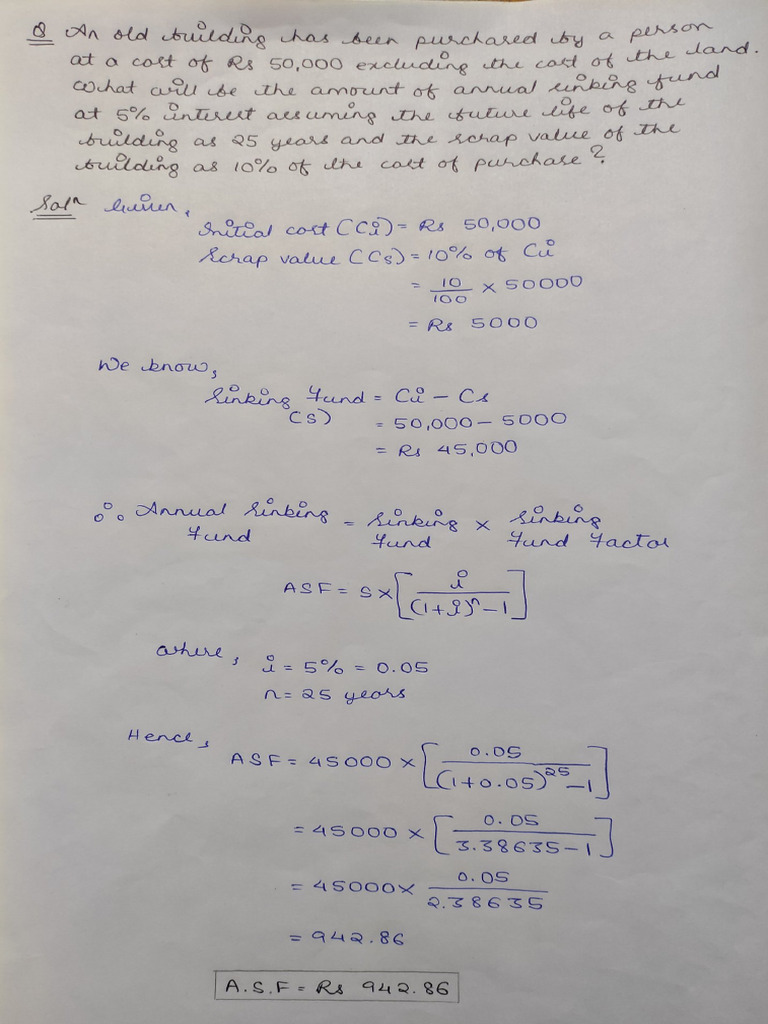 Q An old building has been purchased by a person
at a cost of Rs 50,000 excluding the cost of the land.
What will be the amount of annual sinking fund
at 5% interest assuming the future life of the
building as 25 years and the scrap value of the
building as 10% of the cost of purchase?
Solⁿ Given,
Initial cost (Ci) = Rs 50,000
Scrap value (Cs) = 10% of Ci
= 10/100 × 50000
= Rs 5000
We know,
Sinking Fund = Ci – Cs
(S) = 50,000 – 5000
= Rs 45,000
∴ Annual Sinking Fund = Sinking Fund × Sinking Fund Factor
ASF = S × [i / (1+i)ⁿ – 1]
where, i = 5% = 0.05
n = 25 years
Hence,
ASF = 45000 × [0.05 / (1+0.05)²⁵ – 1]
= 45000 × [0.05 / 3.38635 – 1]
= 45000 × 0.05 / 2.38635
= 942.86
A.S.F = Rs 942.86